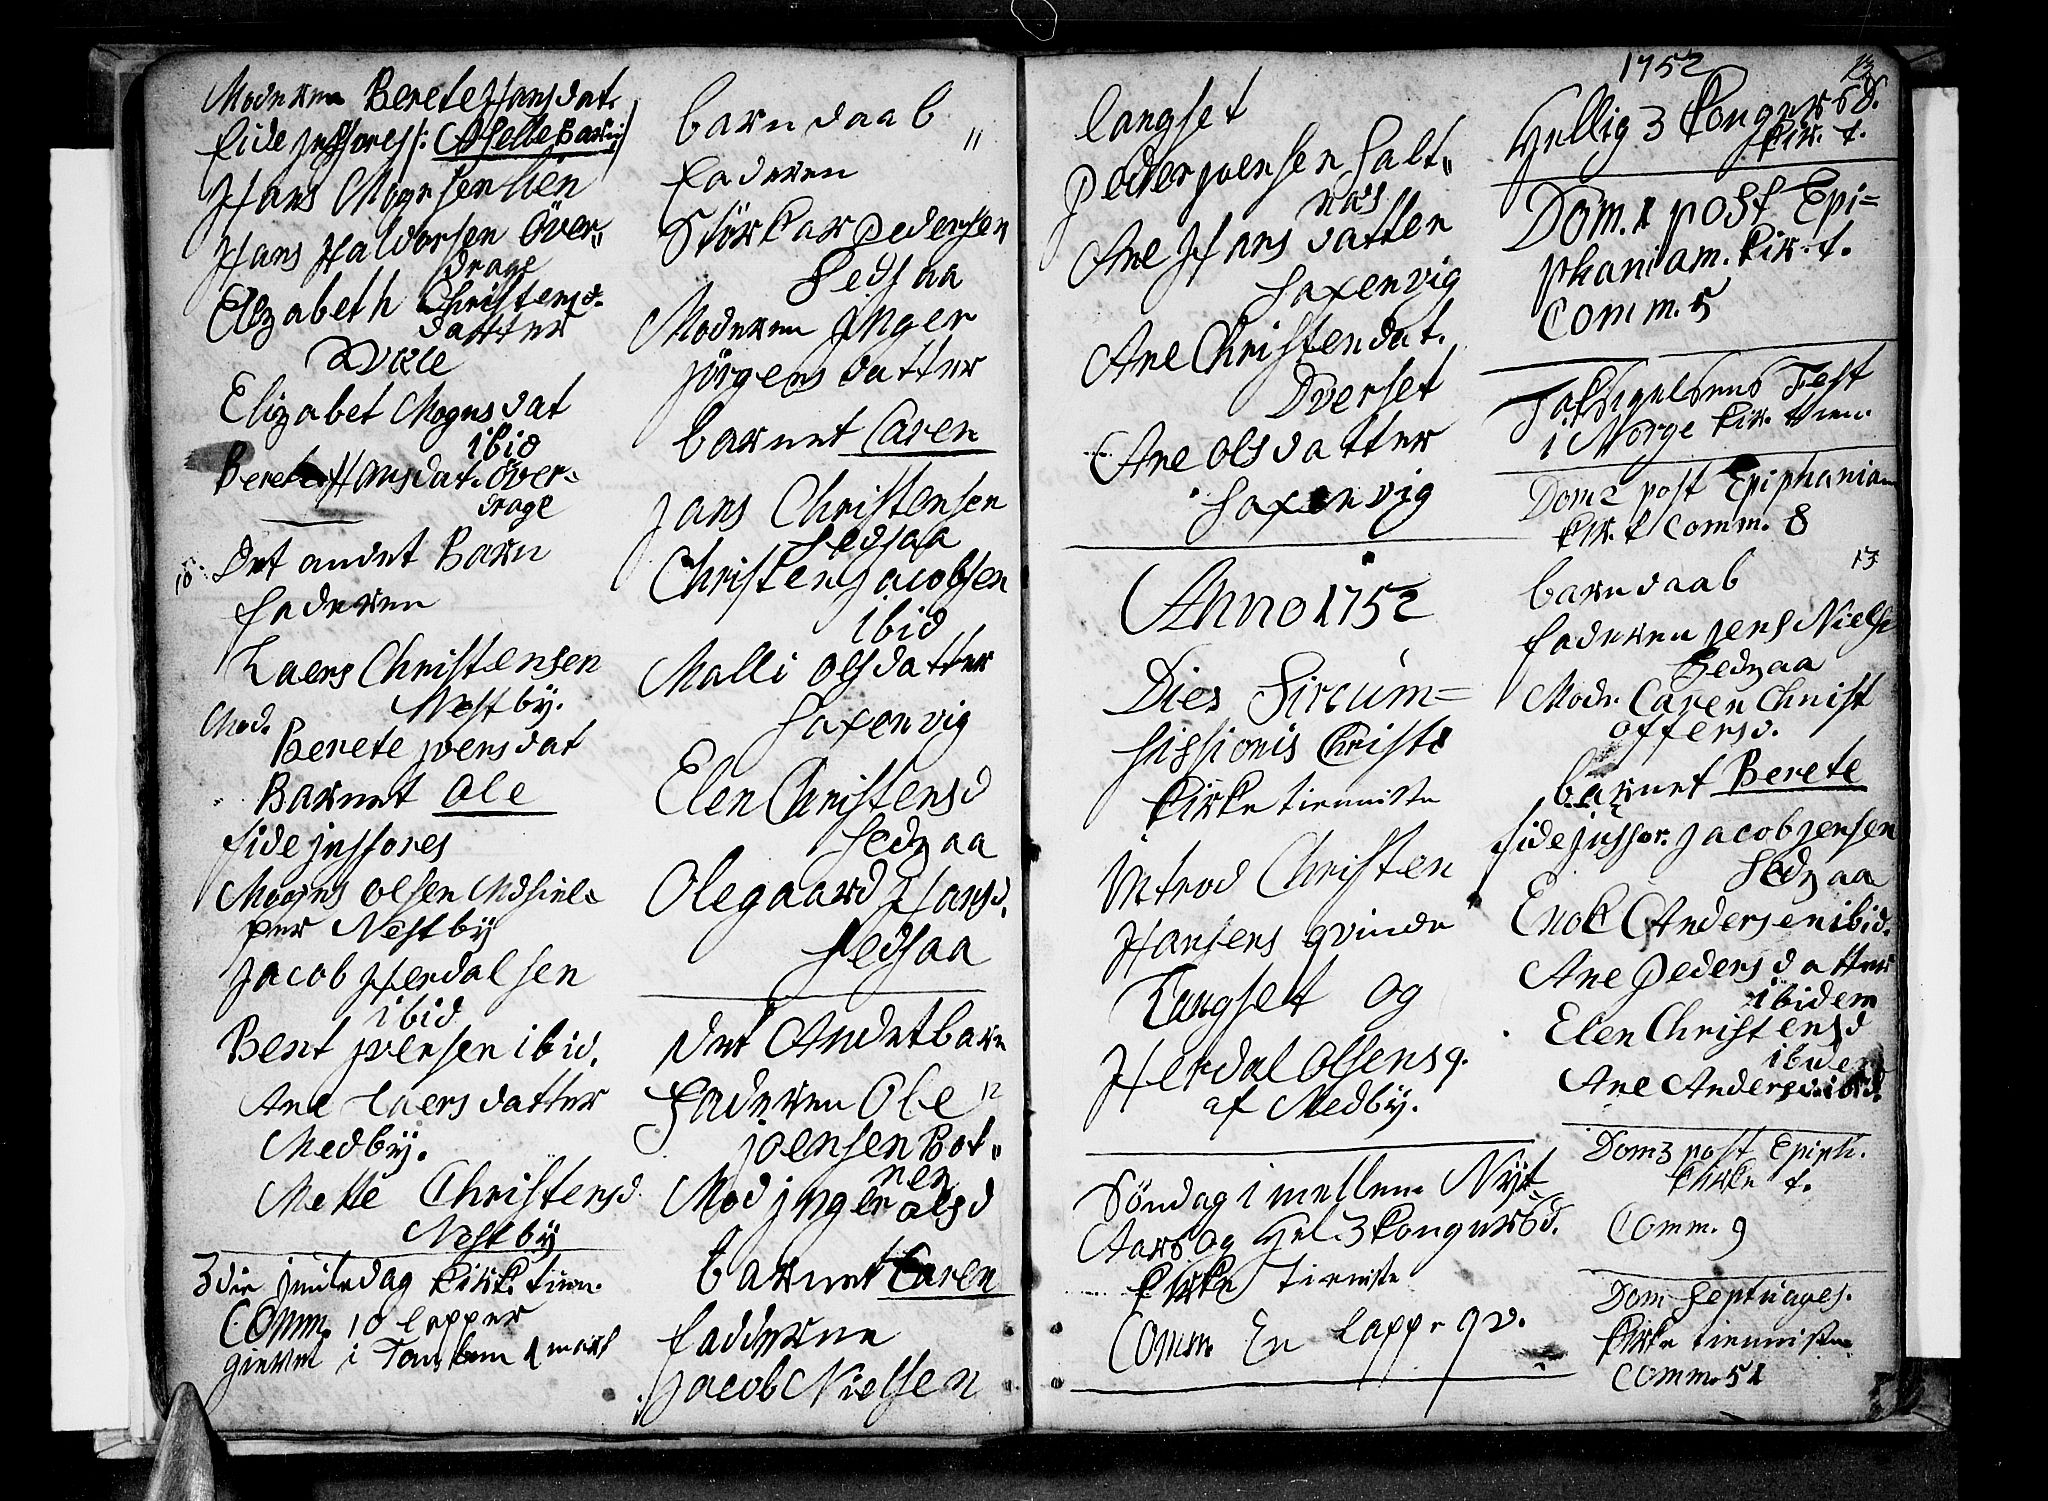 Moderen Berete Hansdat.
fide jussores /: Aselle Barn :/
Hans Mogensen lien
Hans Haldorsen Över„
drage
Elizabeth Christens„
datter
Elizabet Mognsdat
ibid
Berete Hansdat. Över-
drage
10. Det andet Barn
Faderen
Laers Christensen
Nestby.
Mod.
Berete joensdat
Barnet Ole
fidejussores
Mogns Olsen
Nestby
Jacob Herdalsen
ibid
Bent joensen ibid.
Ane Laersdatter
Medby.
Mette Christensd
Nestby
3die juuledag kirk. tien.
Comm. 10 lapper
barndaab
Faderen
Störkar Pedersen
Sedsaa
Moderen Inger
jörgensdatter
barnet Caren
jans Christensen
Sedsaa
Christen jacobsen
ibid
Malli olsdatter
Saxenvig
Elen Christensd
Sedzaa
Olegaard Hansd.
Sedsaa
Det Andet barn
Faderen Ole 12
joensen Bot„
nen
Mod jnger olsd
barnet Caren
fadderne
Jacob Nielsen
langset
Peder joensen Salt„
näs
Ane Hansdatter
Saxenvig
Ane Christendat.
Dverset
Ane olsdatter
Saxenvig
Anno 1752
Dies Sircum=
sissionis Christi
kirke tienniste
Introd Christen
Hansens qvinde
Langset og
Herdal Olsens q.
af Medby.
Söndag imellem Nyt
Aars og Hel. 3 kongers d.
kirke tienniste
Comm. En lapp. qv.
1752
Hellig 3 kongers d.
kir. t.
Dom. 1 post Epi=
phaniam. kir. t.
Comm. 5
Taksigelsens Fest
i Norge kir. tien.
Dom 2 post Epiphaniam
kir. t Comm. 8
13
barndaab
faderen jens Niels
Sedzaa
Modr. Caren Christ
offersd.
barnet Berete
fidejussor. Jacob jensen
Sedzaa
Enok Andersen ibid.
Ane Pedersdatter
ibidem
Elen Christensd
ibidem
Ane Andersd ibid.
Dom 3 post Epiph.
kirke t.
Comm. 9
Dom Septuages.
kirke tienniste
Comm. 51